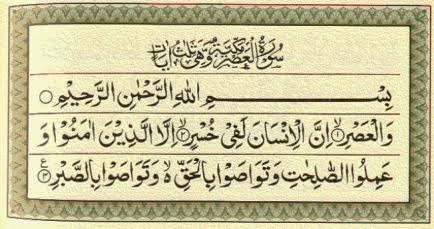 سُورَةُ الْعَصْرِ مَكِّيَّةٌ وَّهِيَ ثَلٰثُ اٰيَاتٍ
بِسْــــــمِ اللّٰهِ الرَّحْمٰنِ الرَّحِيْمِ ○
وَالْعَصْرِ ۙ﴿۱﴾ اِنَّ الْاِنْسَانَ لَفِيْ خُسْرٍ ۙ﴿۲﴾ اِلَّا الَّذِيْنَ اٰمَنُوْا وَ
عَمِلُوا الصّٰلِحٰتِ وَتَوَاصَوْا بِالْحَقِّ ۙ۬ وَتَوَاصَوْا بِالصَّبْرِ ﴿۳﴾ ع